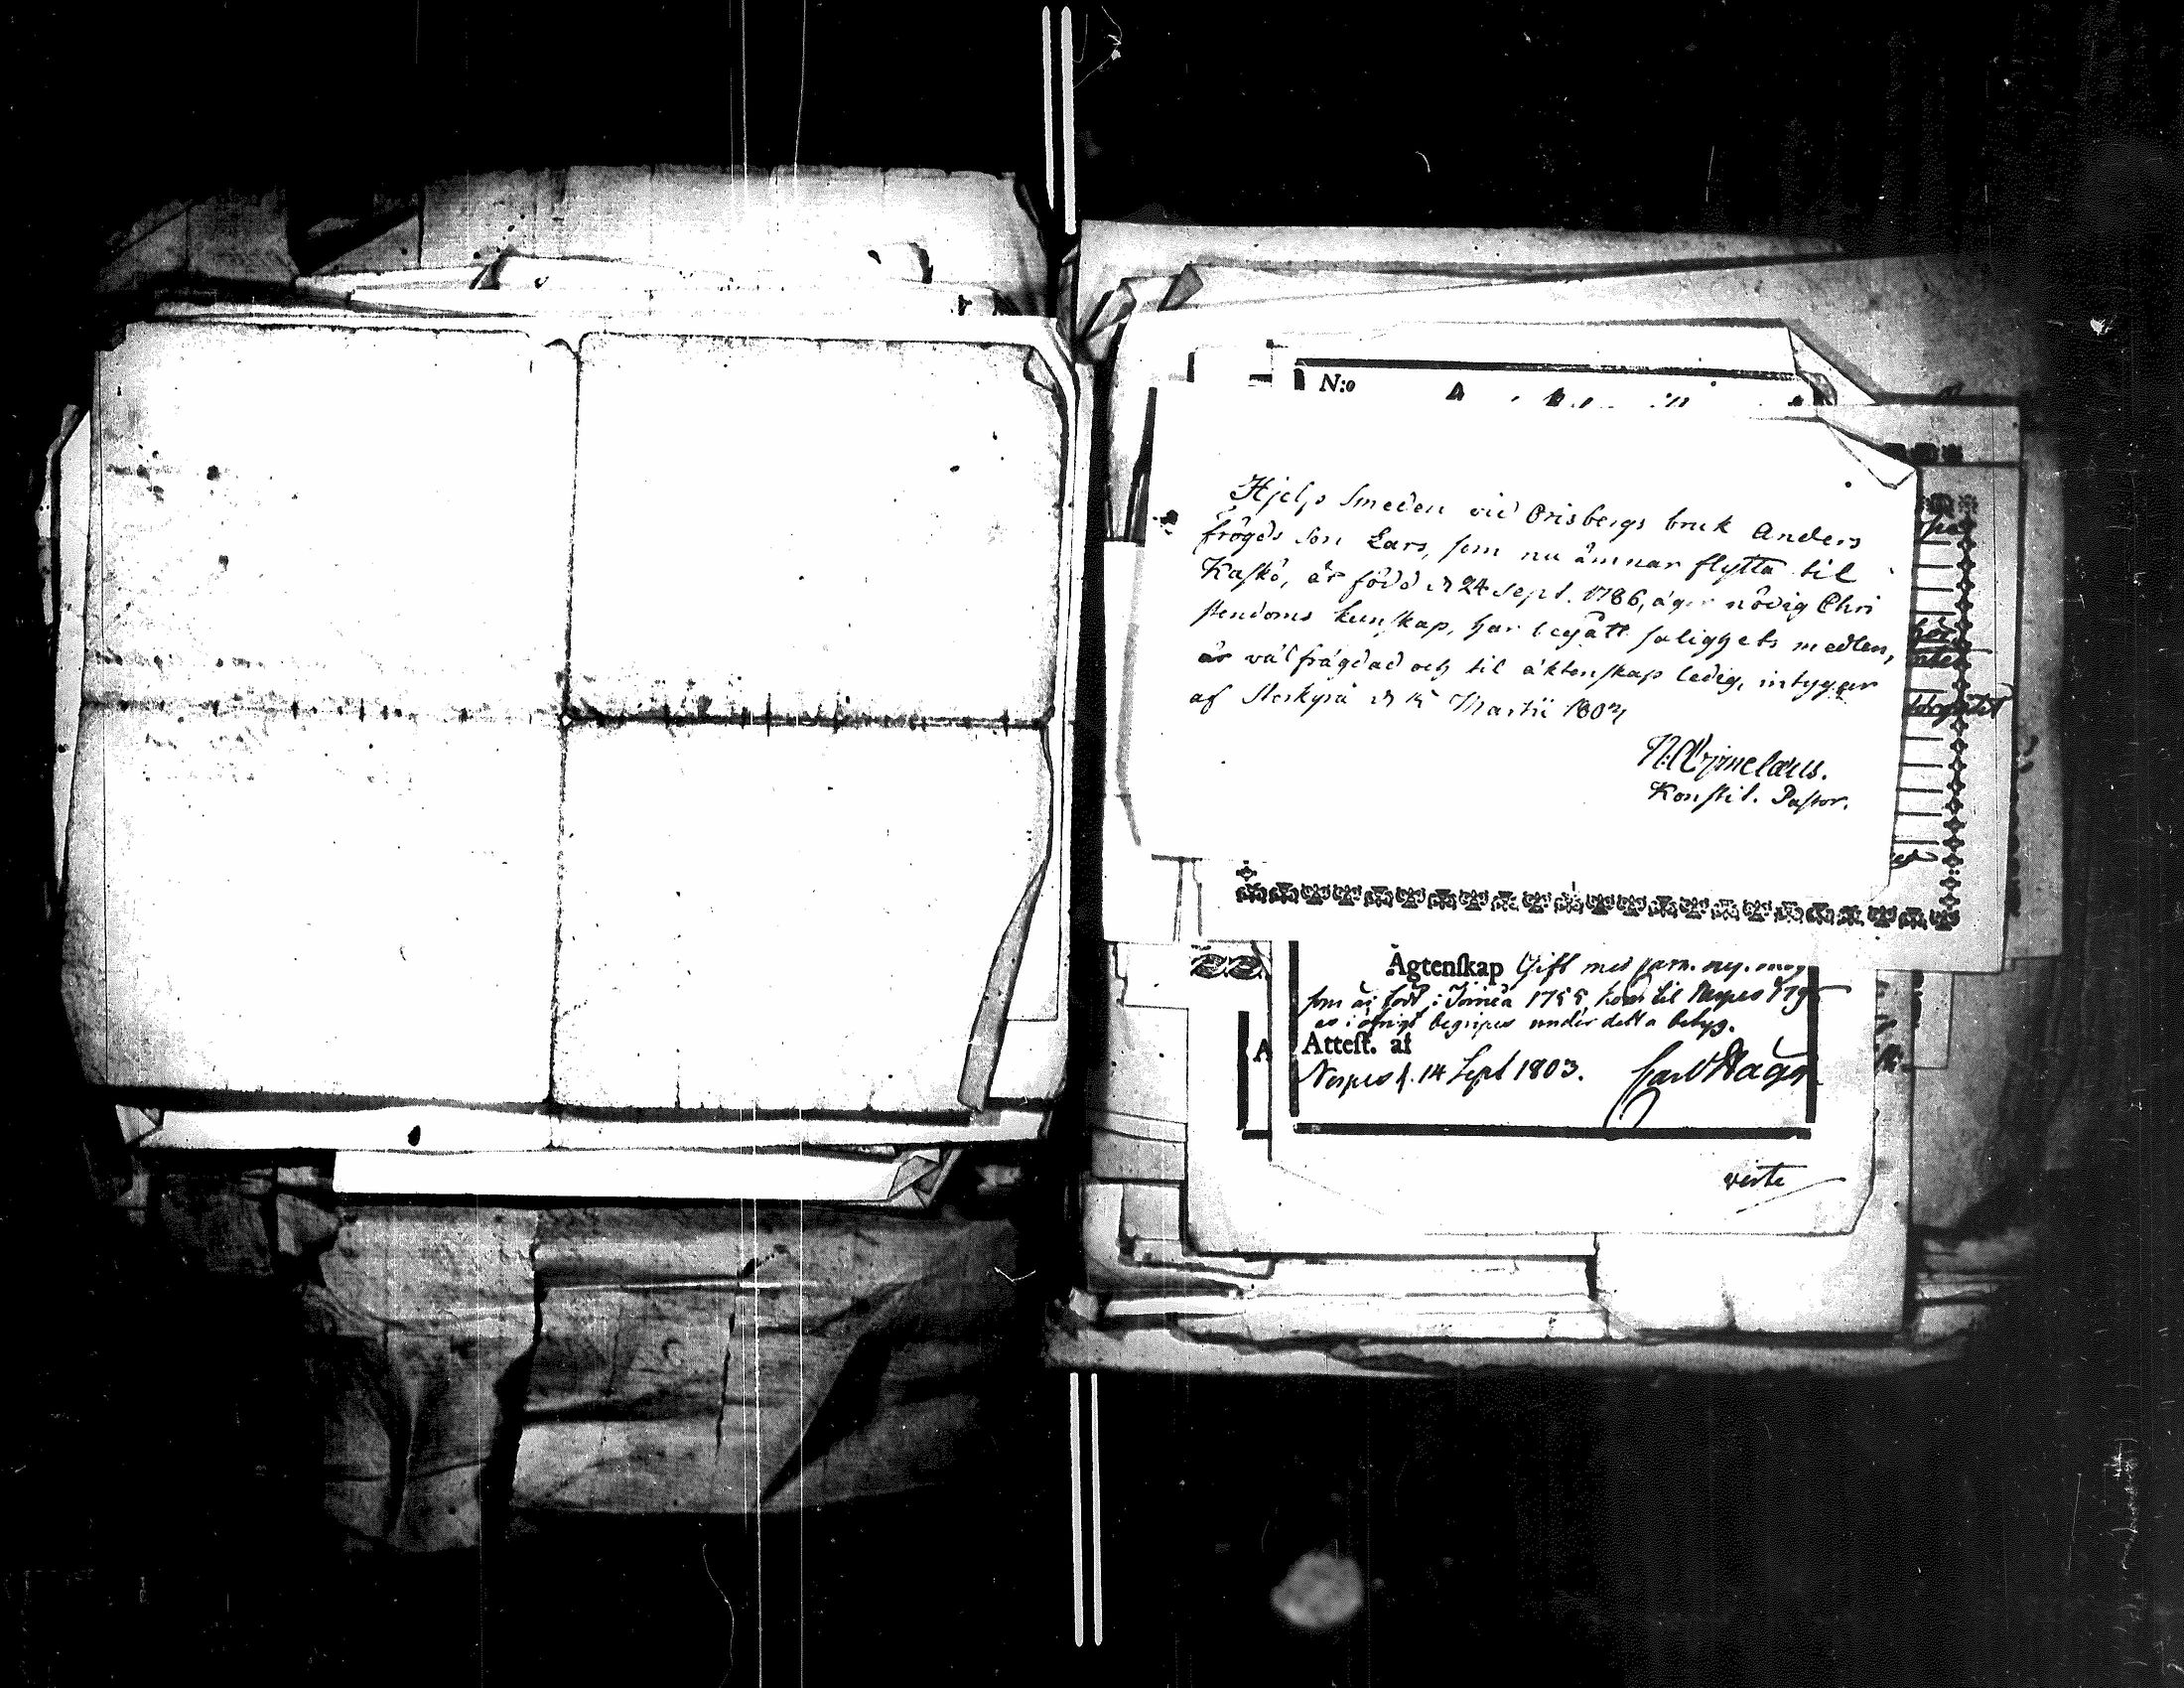 N:o
Hjelp Smeden vid Orisbergs bruk Anders
frögds Son Lars, som nu ämnar flytta til
Kaskö, är född d 24 Sept. 1786, äger nödig Chri
stendoms kunskap, har begått salighets medlen,
är välfrägdad och til äktenskap ledig, intygar
af Storkyrå d 15 Martii 1803
Konstit. Pastor.
Ägtenskap Gift med
som är född i 1755 kom til Nerpes
es i öfrigt begripes under detta betyg.
Attest. af
Nerpes d. 14 Sept 1803. Carl
verte